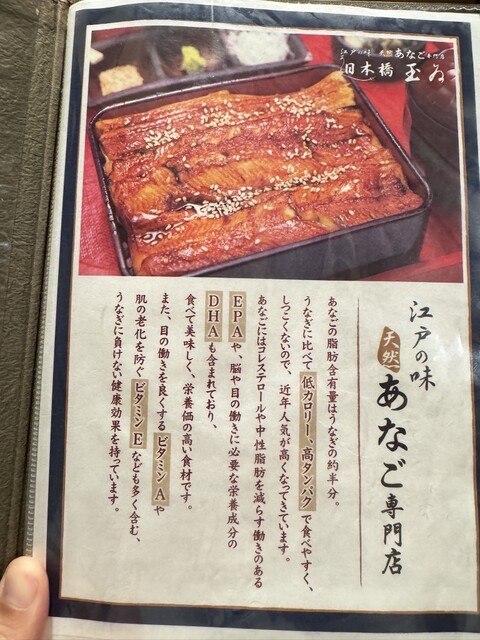 江戸の味 天然あなご専門店
日本橋 玉ゐ
江戸の味
天然あなご専門店
あなごの脂肪含有量はうなぎの約半分。
うなぎに比べて低カロリー、高タンパクで食べやすく、
しつこくないので、近年人気が高くなってきています。
あなごにはコレステロールや中性脂肪を減らす働きのある
EPAや、脳や目の働きに必要な栄養成分の
DHAも含まれており、
食べて美味しく、栄養価の高い食材です。
また、目の働きを良くするビタミンAや
肌の老化を防ぐビタミンEなども多く含む、
うなぎに負けない健康効果を持っています。